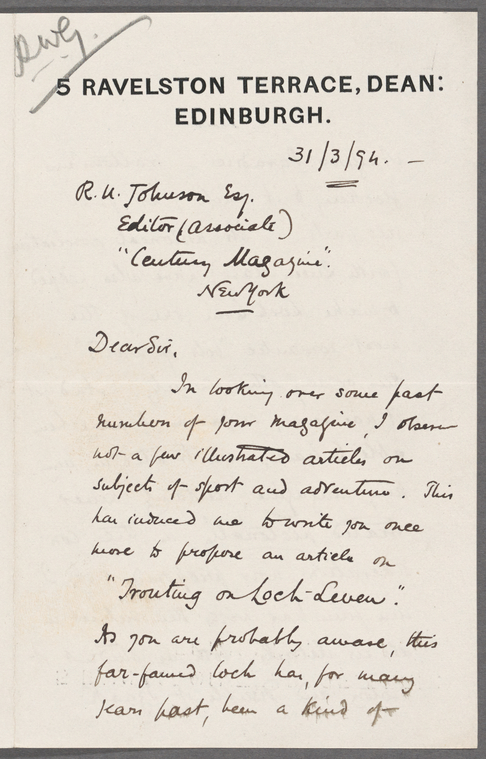 RWG.
5 RAVELSTON TERRACE, DEAN:
EDINBURGH.
31/3/94. —
R. U. Johnson Esq.
Editor (associate)
"Century Magazine".
New York
Dear Sir,
In looking over some past
numbers of your magazine, I observe
not a few illustrated articles on
subjects of sport and adventure. This
has induced me to write you once
more to propose an article on
"Trouting on Loch-Leven".
As you are probably aware, this
far-famed loch has, for many
years past, been a kind of